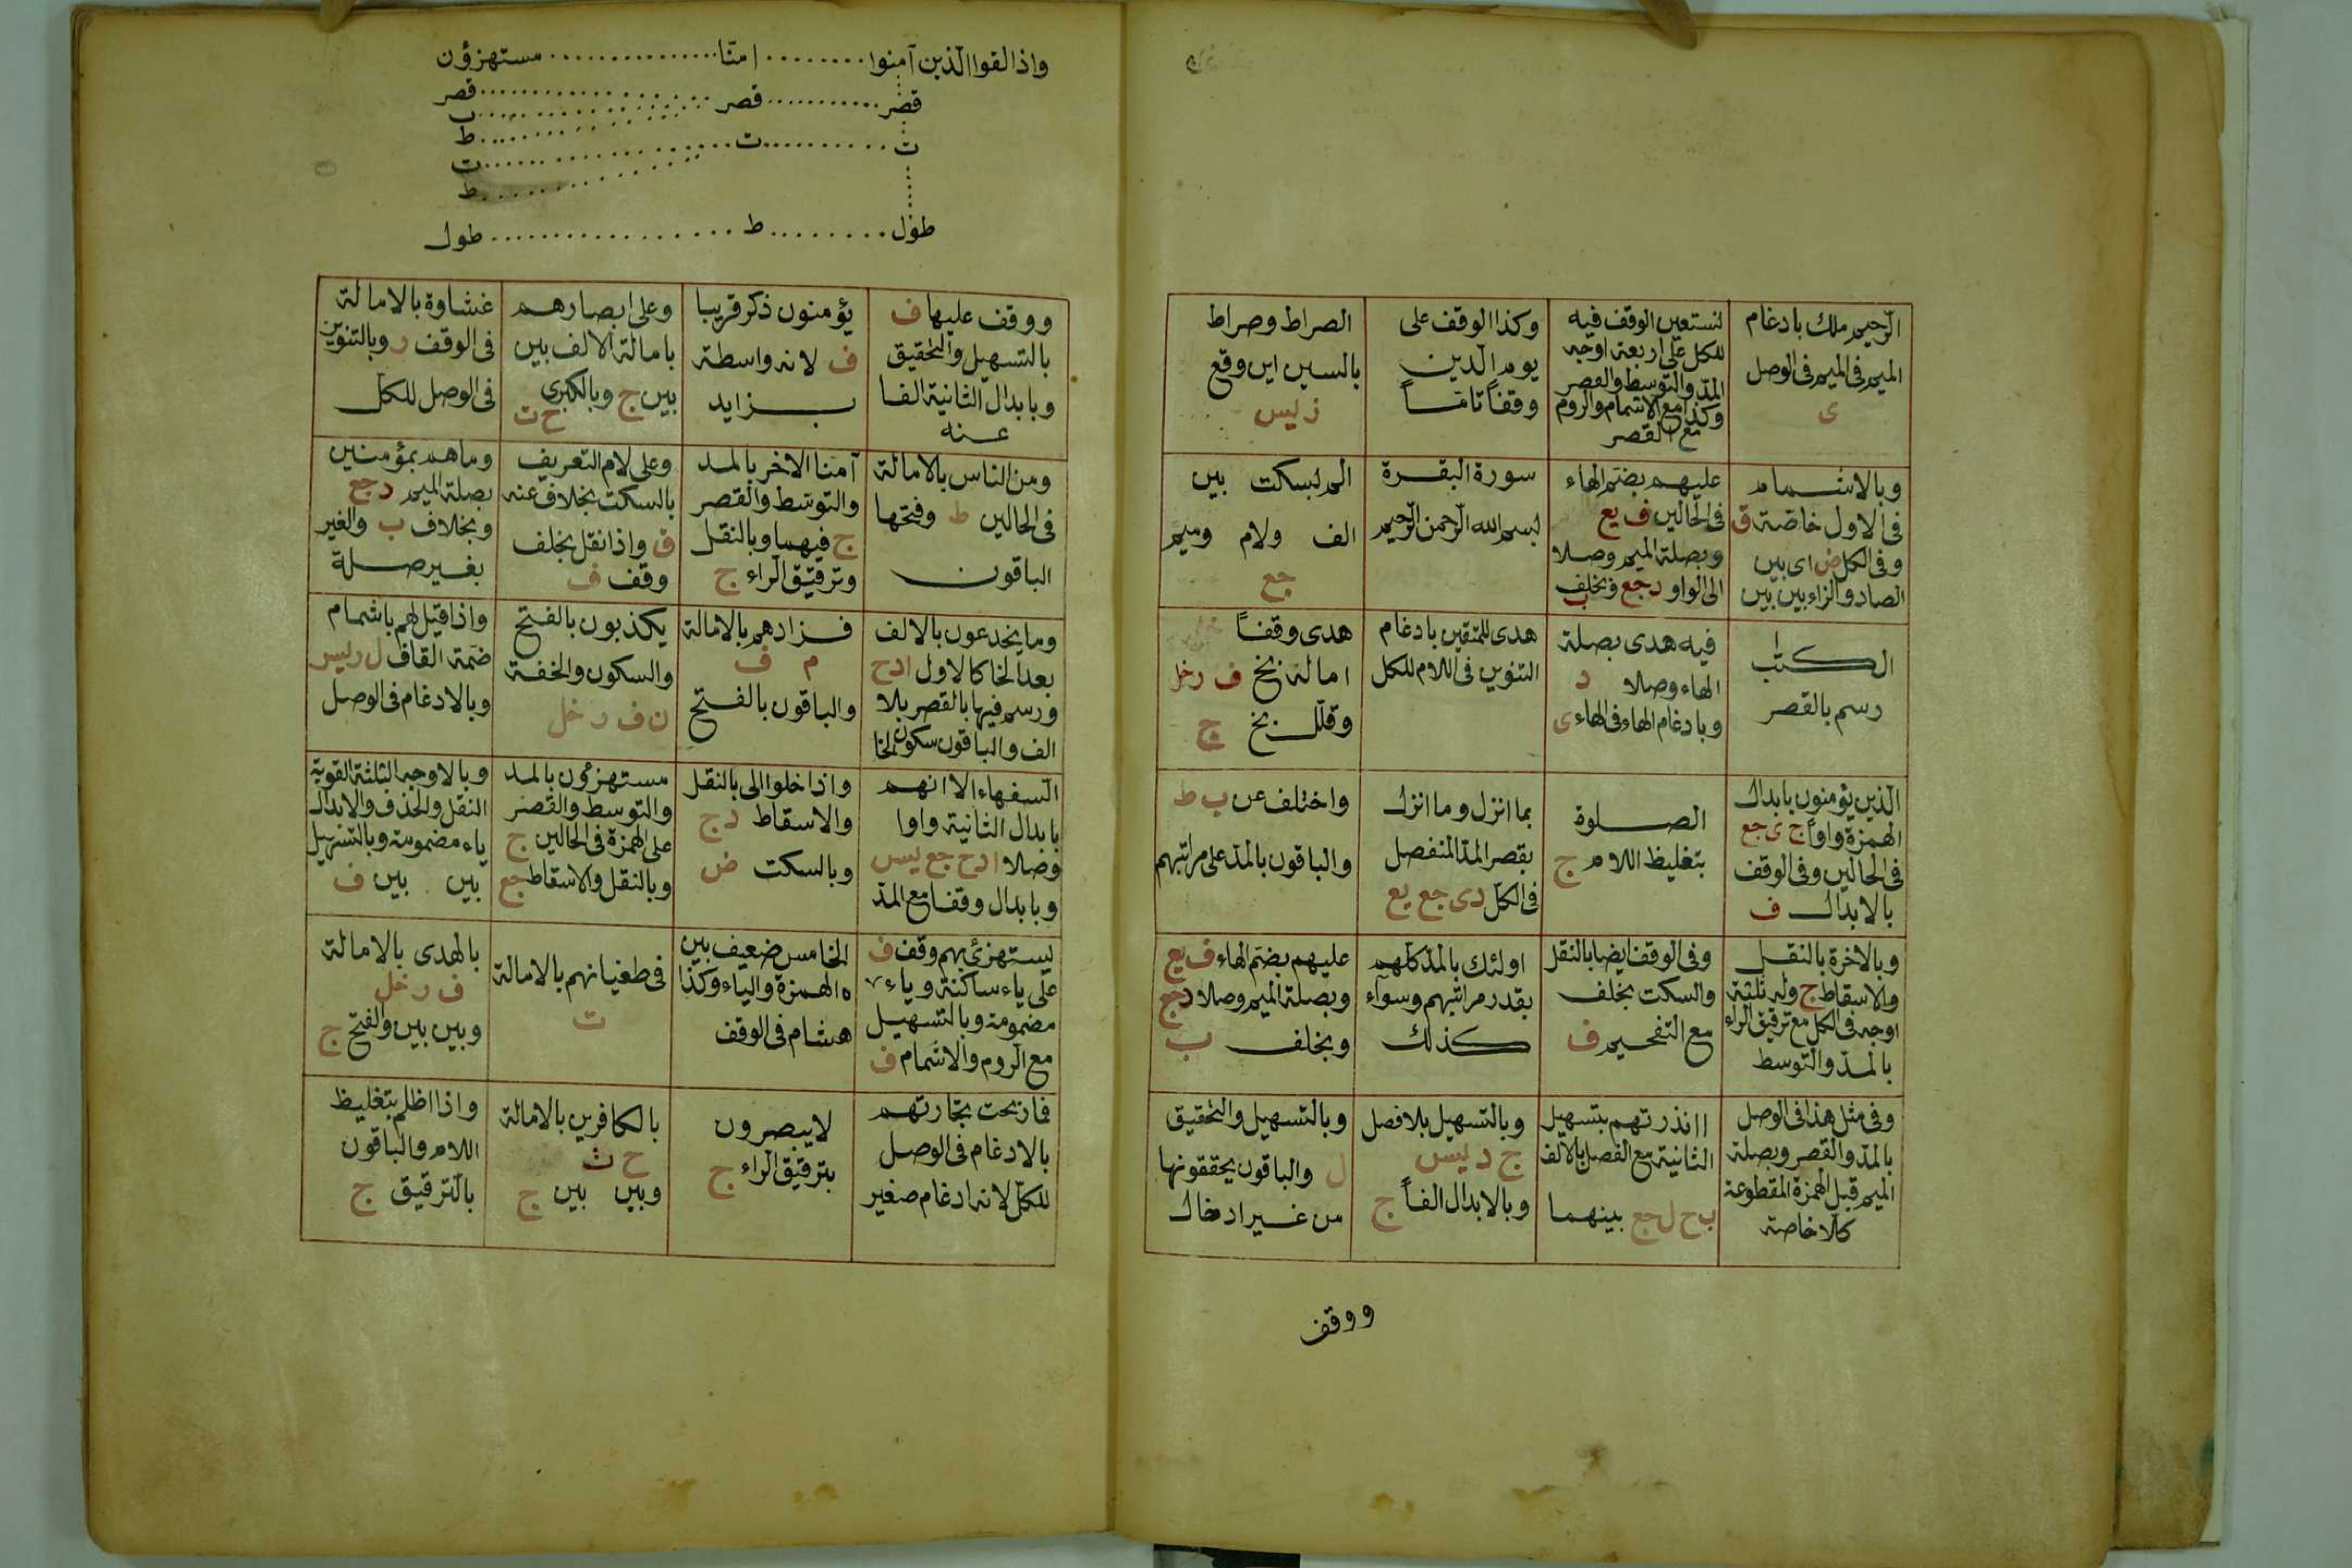 الرحيم ملك بادغام
الميم فى الميم فى الوصل
ى
نستعين الوقف فيه
للكل على اربعة اوجه
المد والتوسط والقصر
وكذا مع الاشمام والروم
مع القصر
وكذا الوقف على
يوم الدين
وقفاً تامّاً
الصراط وصراط
بالسين اين وقع
ز ليس
وبالاشمام
فى الاول خاصة ق
وفى الكل ض اى بين
الصاد والزاء بين بين
عليهم بضم الهاء
فى الحالين ف يع
وبصلة الميم وصلا
الى الواو د جع وبخلف
ب
سورة البقرة
بسم الله الرحمن الرحيم
الم بسكت بين
الف ولام وميم
جع
الكتب
رسم بالقصر
فيه هدى بصلة
الهاء وصلا د
وبادغام الهاء فى الهاء ى
هدى للمتقين بادغام
التنوين فى اللام للكل
هدى وقفاً
امالة بخ ف ر خل
وقلل بخ ج
الذين يؤمنون بابدال
الهمزة واواً ج ى جع
فى الحالين وفى الوقف
بالابدال ف
الصلوة
بتغليظ اللام ج
بما انزل وما انزل
بقصر المد المنفصل
فى الكل د ى جع يع
واختلف عن ب ط
والباقون بالمد على مراتبهم
وبالاخرة بالنقل
والاسقاط ج وله ثلثة
اوجه فى الكل مع ترقيق الراء
بالمد والتوسط
وفى الوقف ايضا بالنقل
والسكت بخلف
مع التفخيم ف
اولئك بالمد كلهم
بقدر مراتبهم وسوآء
كذلك
عليهم بضم الهاء ف يع
وبصلة الميم وصلا د جع
وبخلف ب
وفى مثل هذا فى الوصل
بالمد والقصر وبصلة
الميم قبل الهمزة المقطوعة
كلا خاصة
اانذرتهم بتسهيل
الثانية مع الفصل بالالف
ب ح ل جع بينهما
وبالتسهيل بلا فصل
ج د ليس
وبالابدال الفاً ج
وبالتسهيل والتحقيق
ل والباقون يحققونها
من غير ادخال
ووقف
واذا لقوا الذين آمنوا ........ امنّا .............. مستهزؤن
قصر ........... قصر ............ قصر
ت
ط
ت .......... ت ............ ت
ط
طول ........ ط ................. طول
ووقف عليها ف
بالتسهيل والتحقيق
وبابدال الثانية الفا
عنه
يؤمنون ذكر قريبا
ف لانه واسطة
بزايد
وعلى ابصارهم
بامالة الالف بين
بين ج وبالكبرى
ح ت
غشاوة بالامالة
فى الوقف ر وبالتنوين
فى الوصل للكل
ومن الناس بالامالة
فى الحالين ط وفتحها
الباقون
آمنا الاخر بالمد
والتوسط والقصر
ج فيهما وبالنقل
وترقيق الراء ج
وعلى لام التعريف
بالسكت بخلاف عنه
ق واذا نقل بخلف
وقف ف
وما هم بمؤمنين
بصلة الميم د جع
وبخلاف ب والغير
بغير صلة
وما يخدعون بالالف
بعد الخا كالاول ا د ح
ورسم فيها بالقصر بلا
الف والباقون سكون الخا
فزادهم بالامالة
م ف
والباقون بالفتح
يكذبون بالفتح
والسكون والخفة
ن ف ر خل
واذا قيل لهم باشمام
ضمة القاف ل ر ليس
وبالادغام فى الوصل
السفهاء الا انهم
بابدال الثانية واوا
وصلا ا د ح جع ليس
وبابدال وقفا مع المد
واذا خلوا الى بالنقل
والاسقاط د ج
وبالسكت ض
مستهزءون بالمد
والتوسط والقصر
على الهمزة فى الحالين ج
وبالنقل والاسقاط جع
وبالاوجه الثلثة القوية
النقل والحذف والابدال
ياء مضمومة وبالتسهيل
بين بين ف
يستهزئ بهم وقف ف
على ياء ساكنة وياء
مضمومة وبالتسهيل
مع الروم والاشمام ف
الخامس ضعيف بين
الهمزة والياء وكذا
هشام فى الوقف
فى طغيانهم بالامالة
ت
بالهدى بالامالة
ف ر خل
وبين بين والفتح ج
فما ربحت تجارتهم
بالادغام فى الوصل
للكل لانه ادغام صغير
لا يبصرون
بترقيق الراء ج
بالكافرين بالامالة
ح ث
وبين بين ج
واذا اظلم بتغليظ
اللام والباقون
بالترقيق ج